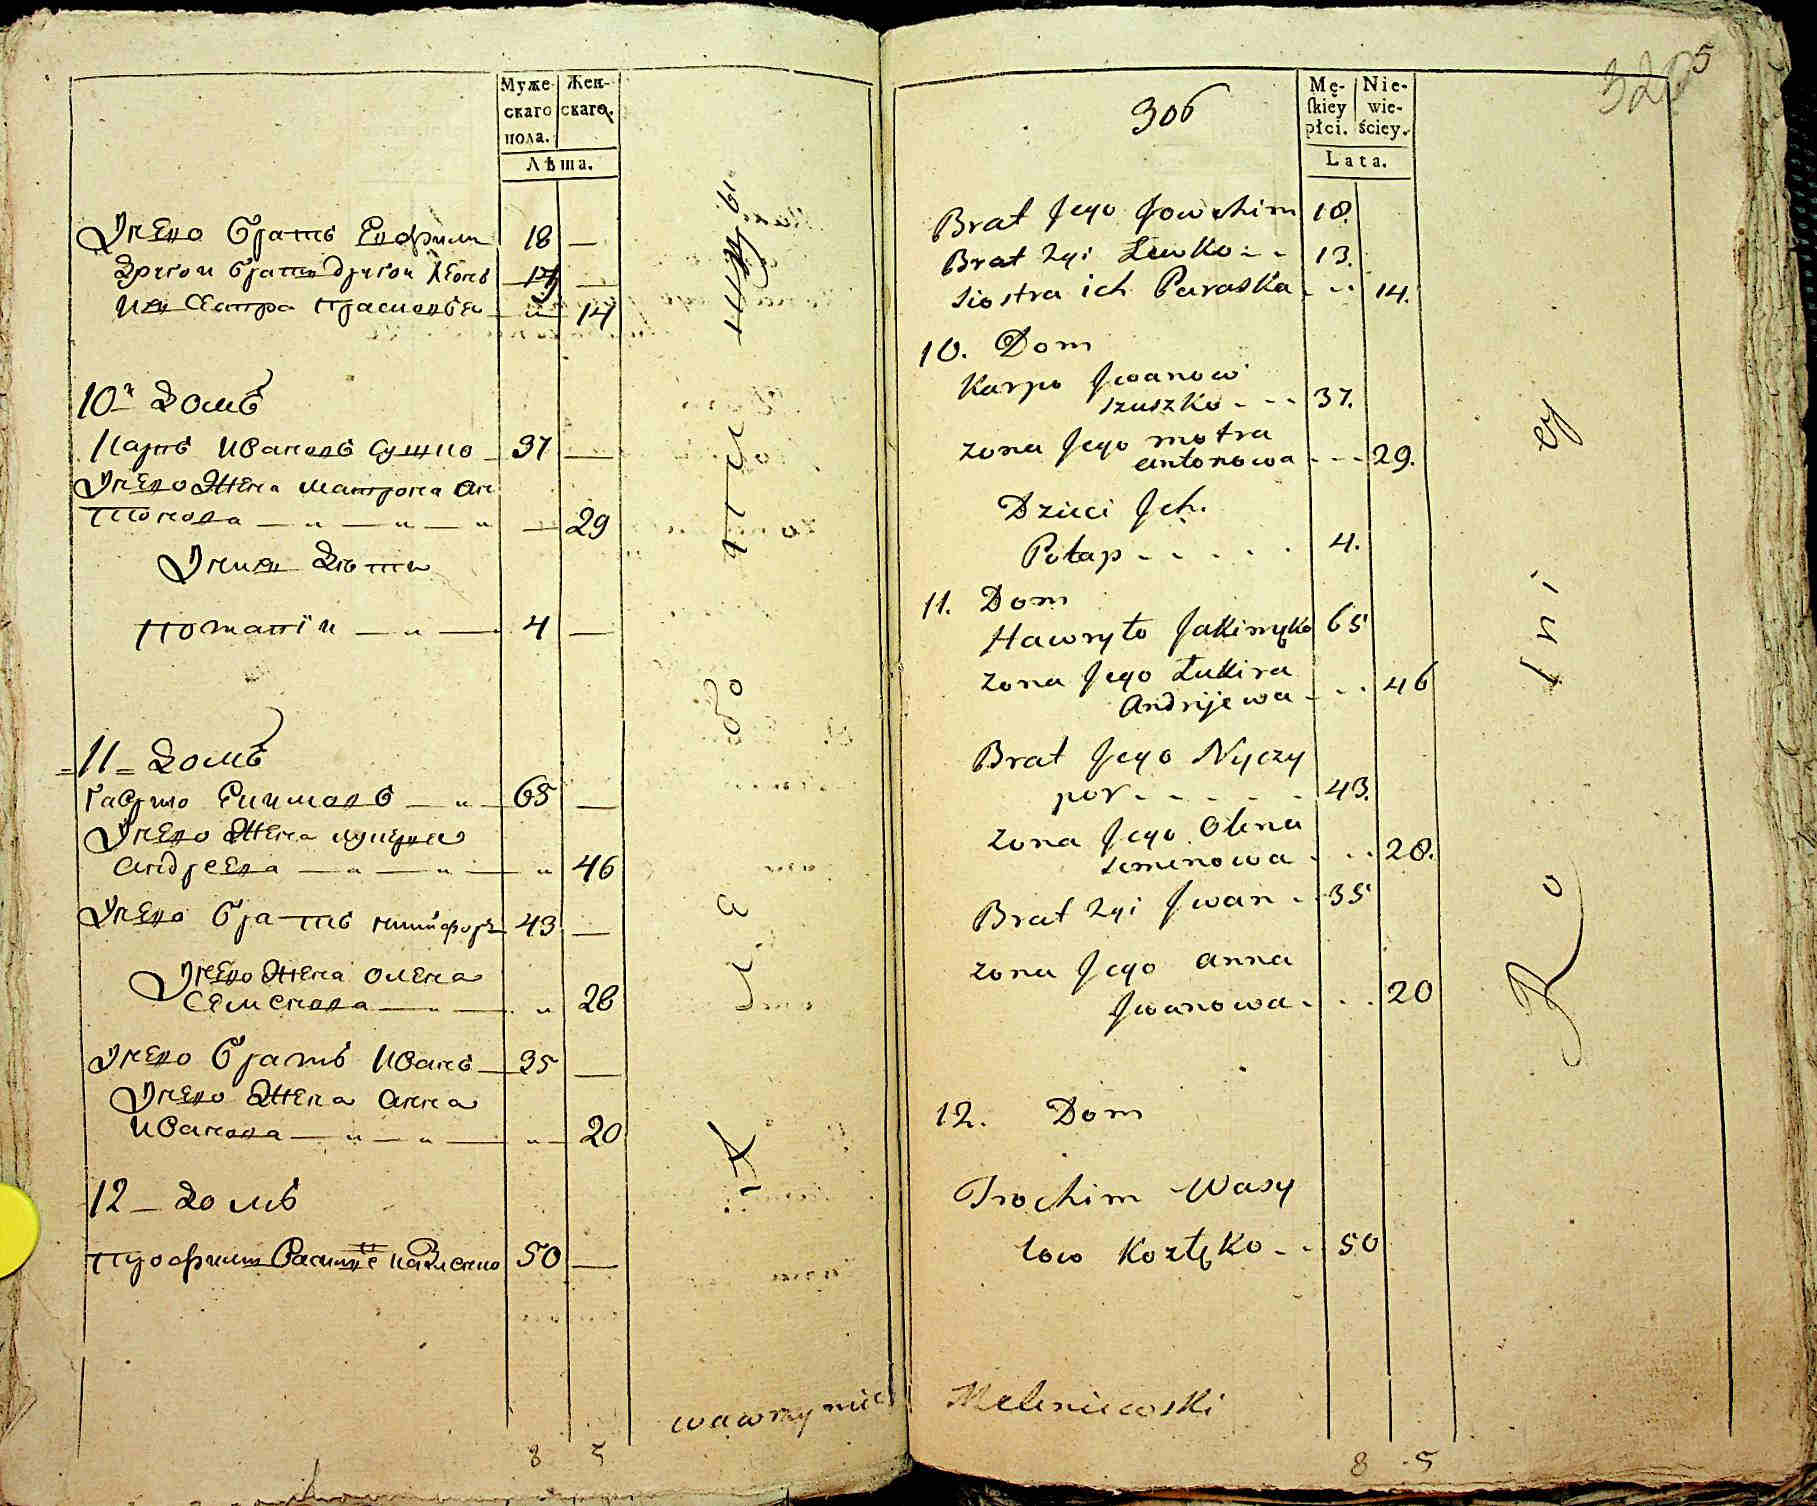 Муже-
скаго
пола.
Жен-
скаго.
Лѣта.
У него братъ Ефимъ 18 —
Другой братъ
Их сестра Прасковья — 14
10й Домъ
Карпъ Ивановъ Сушко 37 —
У него жена Матрона Ан
тонова — 29
У них дѣти
Потапій — 4 —
11 Домъ
Гаврило Екимовъ — 65 —
У него жена
Андреева — 46
У него братъ Никифоръ 43 —
У него жена Олена
Семенова — 28
У него братъ Иванъ 35 —
У него жена Анна
Иванова — 20
12 Домъ
Трофимъ 50 —
wawrzyniec
8 5
306
Mę-
ſkiey
płci.
Nie-
wie-
ściey.
Lata.
Brat Jego Jowchim 18.
Brat 2gi Lewko 13.
Siostra ich Paraska 14.
10. Dom
Karpo Jwanow
szuszko 37.
zona Jego motra
antonowa 29.
Dzieci Jch.
Potap 4.
11. Dom
Hawryło 65
zona Jego Łukira
Andrijewa 46
Brat Jego Nyczy
por 43.
zona Jego Olena
semenowa 28.
Brat 2gi Jwan 35
zona Jego anna
Jwanowa 20
12. Dom
Trochim Wasy
low 50
8 5